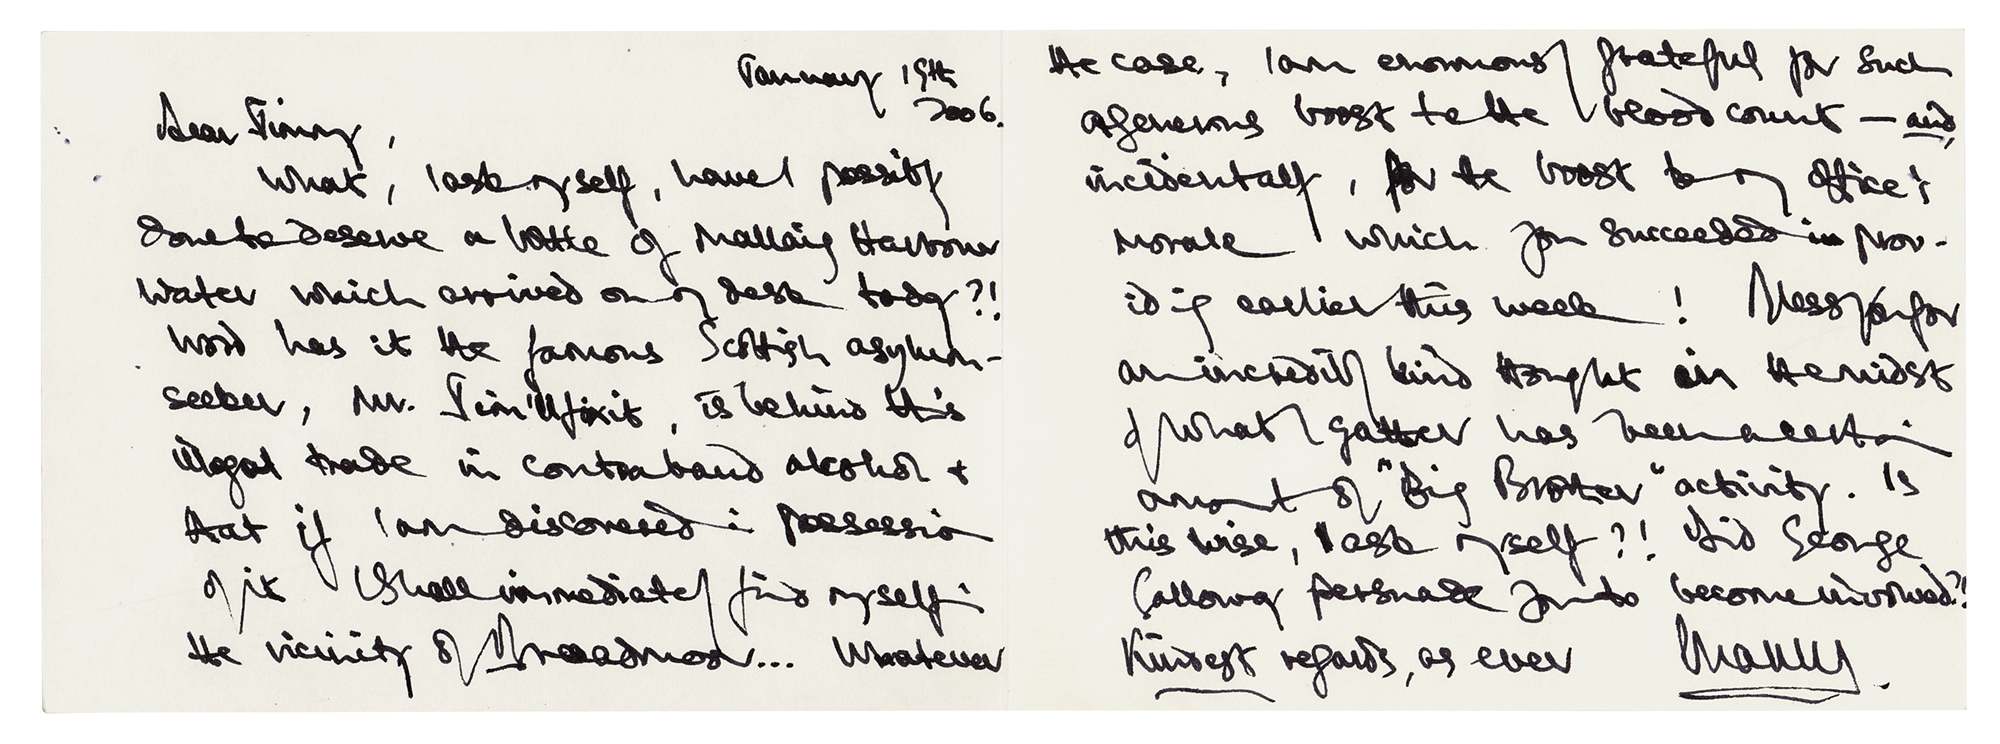 January 19th
2006.
Dear Jimmy,
What, I ask myself, have I possibly
done to deserve a bottle of Mallaig Harbour
Water which arrived on my desk today?!
Word has it the famous Scottish asylum-
seeker, Mr. Jim'll fixit, is behind this
illegal trade in contraband alcohol +
that if I am discovered in possession
of it I shall immediately find myself in
the vicinity of Broadmoor... Whatever
the case, I am enormously grateful for such
a generous boost to the blood count — and,
incidentally, for the boost to my office's
morale which you succeeded in prov-
iding earlier this week! Bless you for
an incredibly kind thought in the midst
of what I gather has been a certain
amount of "Big Brother" activity. Is
this wise, I ask myself?! Did George
Galloway persuade you to become involved?!
Kindest regards, as ever